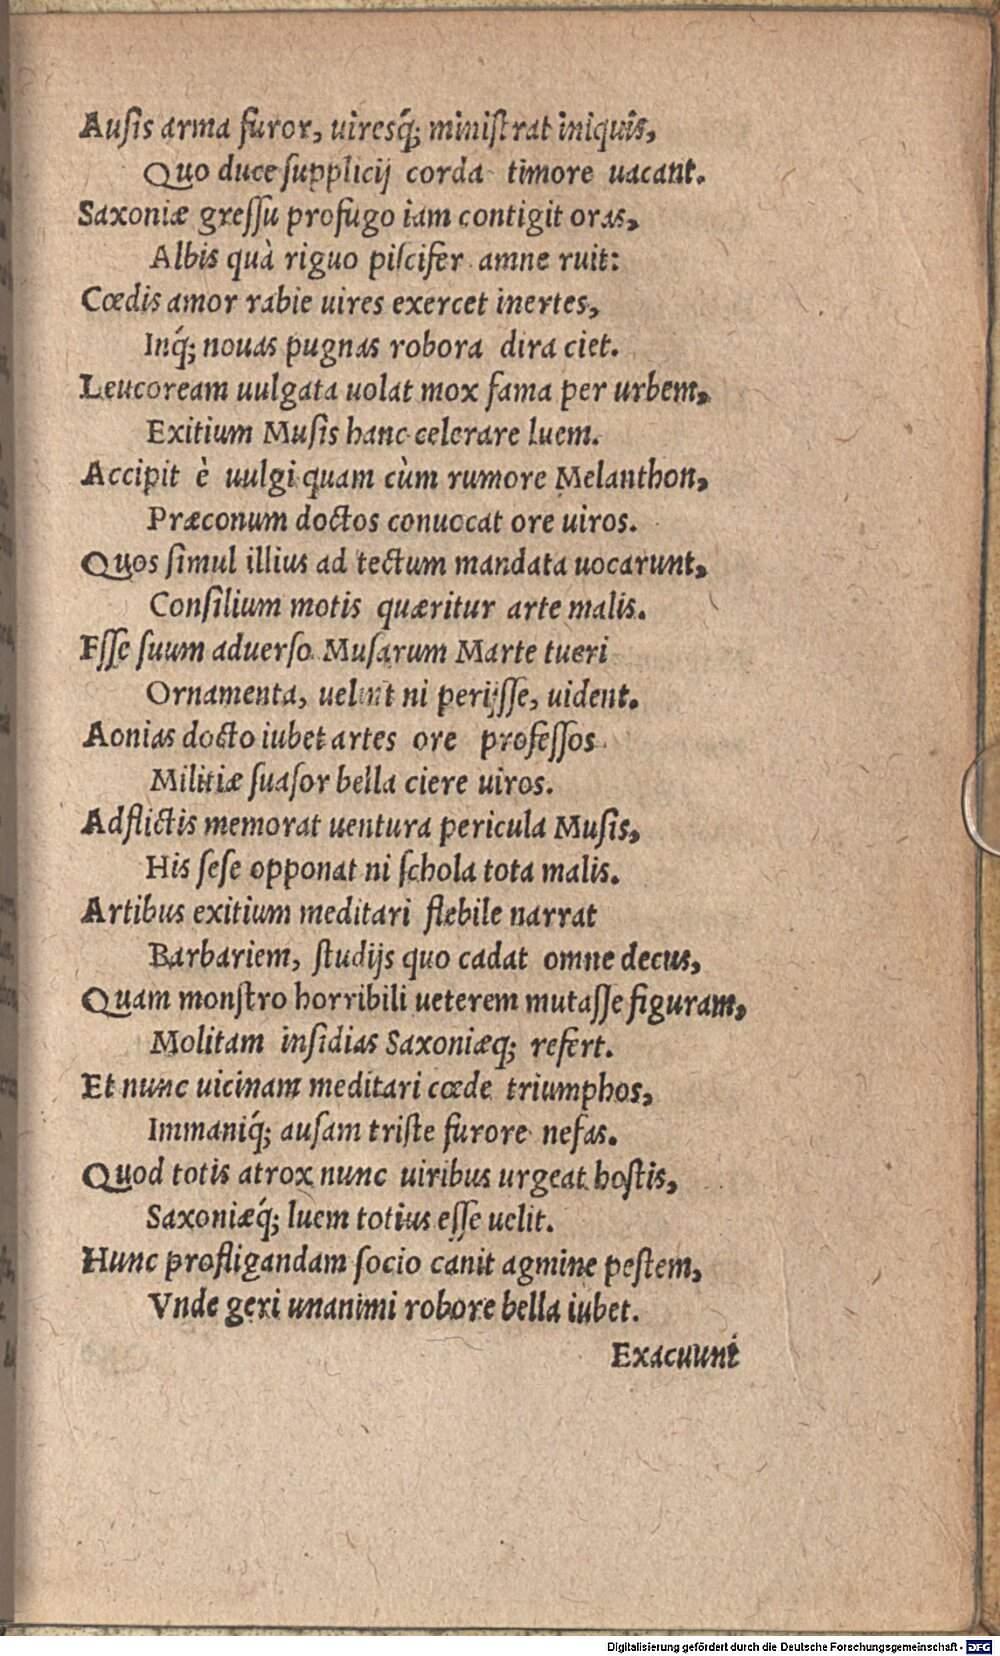 Auſis arma furor, uiresq́; miniſtrat iniquis,
Quo duce ſupplicij corda timore uacant.
Saxoniæ greſſu profugo iam contigit oras,
Albis quà riguo piſcifer amne ruit:
Cœdis amor rabie uires exercet inertes,
Inq́; nouas pugnas robora dira ciet.
Leucoream uulgata uolat mox fama per urbem,
Exitium Muſis hanc celerare luem.
Accipit è uulgi quam cùm rumore Melanthon,
Præconum doctos conuocat ore uiros.
Quos ſimul illius ad tectum mandata uocarunt,
Conſilium motis quæritur arte malis.
Eſſe ſuum aduerſo Muſarum Marte tueri
Ornamenta, uelint ni perijſſe, uident.
Aonias docto iubet artes ore profeſſos
Militiæ ſuaſor bella ciere uiros.
Adflictis memorat uentura pericula Muſis,
His ſeſe opponat ni ſchola tota malis.
Artibus exitium meditari flebile narrat
Barbariem, ſtudijs quo cadat omne decus,
Quam monſtro horribili ueterem mutaſſe figuram,
Molitam inſidias Saxoniæq; refert.
Et nunc uicinam meditari cœde triumphos,
Immaniq́; auſam triſte furore nefas.
Quod totis atrox nunc uiribus urgeat hoſtis,
Saxoniæq́; luem totius eſſe uelit.
Hunc profligandam ſocio canit agmine peſtem,
Vnde geri unanimi robore bella iubet.
Exacuunt
Digitalisierung gefördert durch die Deutsche Forschungsgemeinschaft - DFG